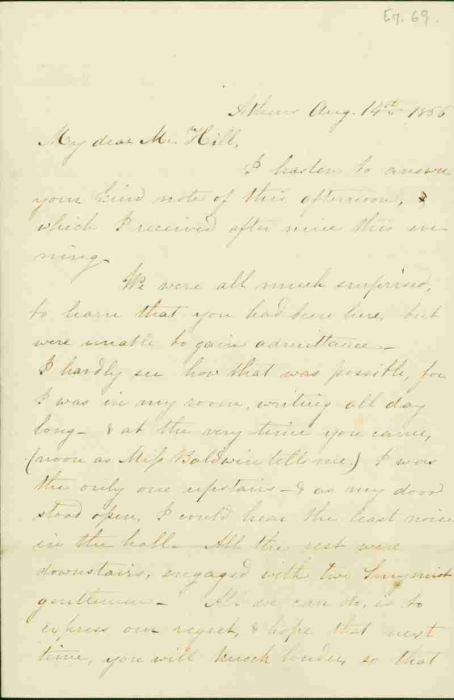 En. 69.
Athens Aug. 14th 1855
My dear Mr. Hill,
I hasten to answer
your kind note of this afternoon, &
which I received after nine this eve-
ning.
We were all much surprised,
to learn that you had been here, but
were unable to gain admittance -
I hardly see how that was possible, for
I was in my room, writing all day
long - & at the very time you came,
(noon as Miss Baldwin tells me,) I was
the only one upstairs - & as my door
stood open, I could hear the least noise
in the hall. - All the rest were
downstairs, engaged with two
gentlemen - All we can do, is to
express our regret, & hope that next
time, you will knock louder, so that